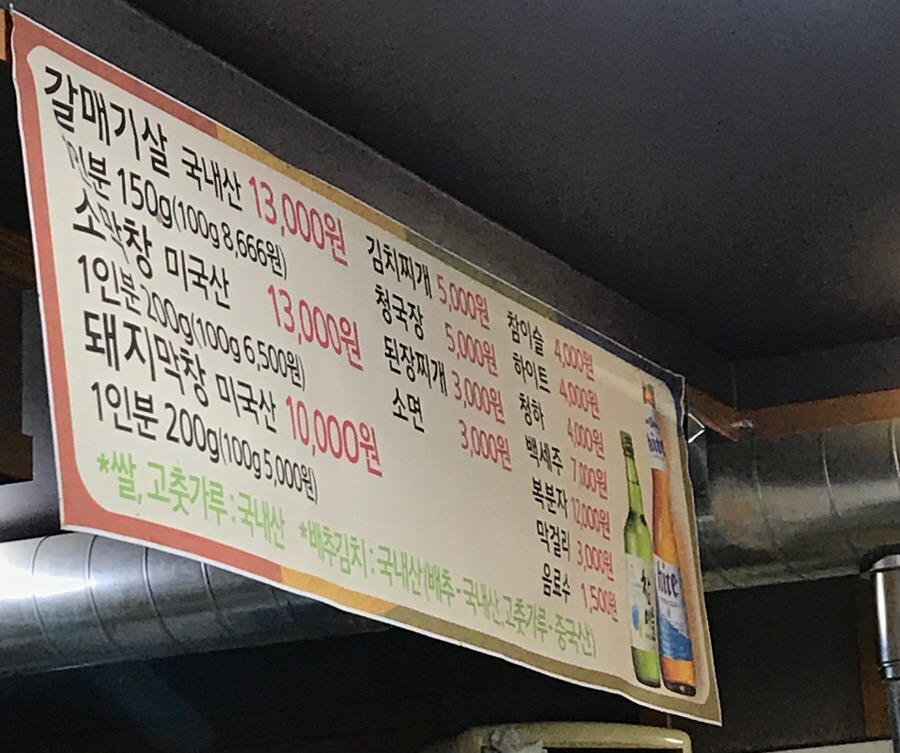 갈매기살 국내산 13,000원
1인분 150g(100g 8,666원)
소막창 미국산 13,000원
1인분 200g(100g 6,500원)
돼지막창 미국산 10,000원
1인분 200g(100g 5,000원)
김치찌개 5,000원
청국장 5,000원
된장찌개 3,000원
소면 3,000원
참이슬 4,000원
하이트 4,000원
청하 4,000원
백세주 7,000원
복분자 12,000원
막걸리 3,000원
음료수 1,500원
*쌀, 고춧가루 : 국내산 *배추김치 : 국내산(배추-국내산,고춧가루-중국산)
hite